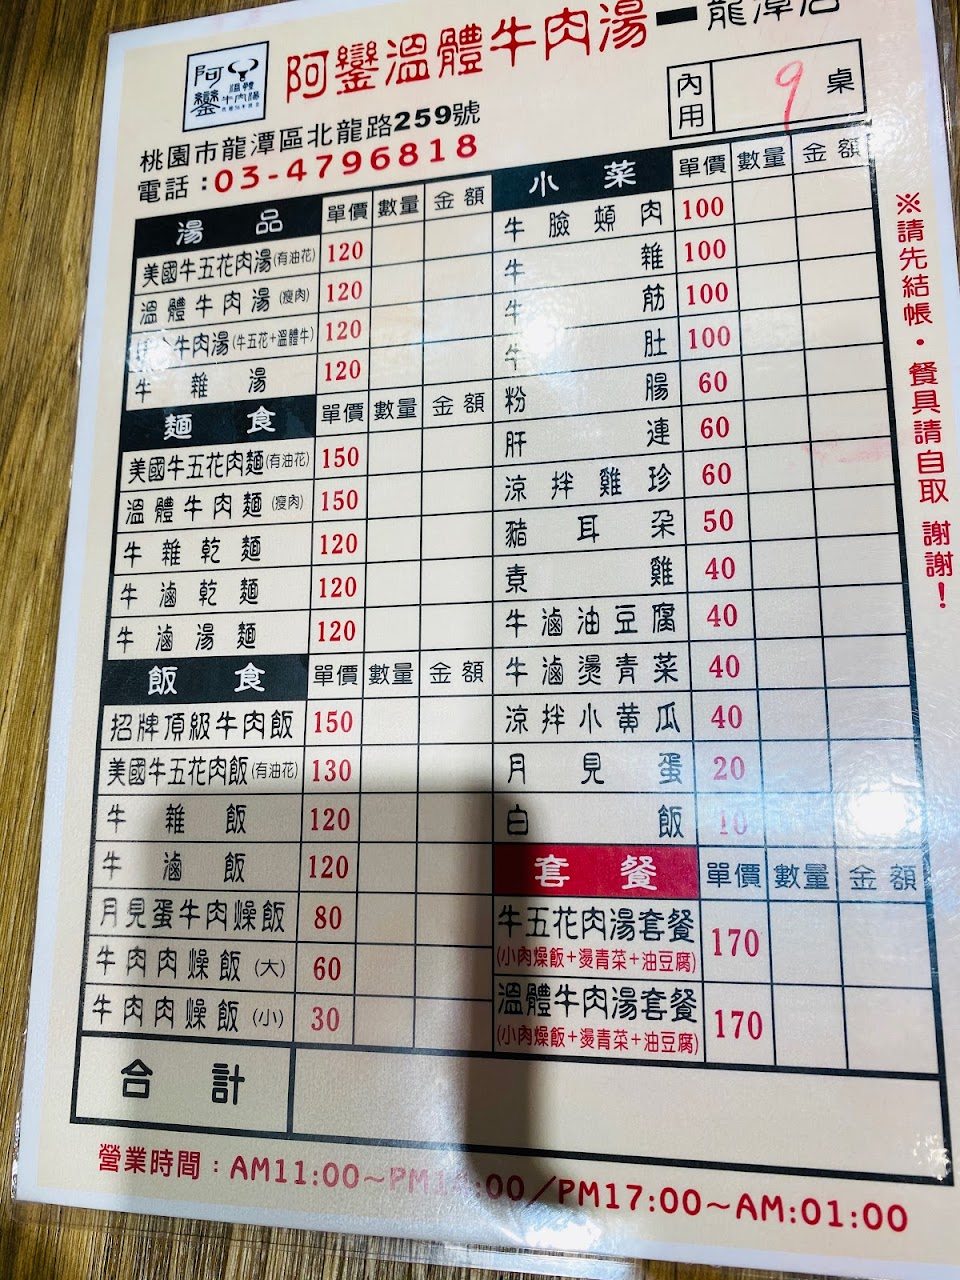 阿鑾溫體牛肉湯－龍潭店
阿鑾
溫體
牛肉湯
內用 9 桌
桃園市龍潭區北龍路259號
電話：03-4796818
湯品 單價 數量 金額
美國牛五花肉湯(有油花) 120
溫體牛肉湯(瘦肉) 120
牛肉湯(牛五花+溫體牛) 120
牛雜湯 120
麵食 單價 數量 金額
美國牛五花肉麵(有油花) 150
溫體牛肉麵(瘦肉) 150
牛雜乾麵 120
牛滷乾麵 120
牛滷湯麵 120
飯食 單價 數量 金額
招牌頂級牛肉飯 150
美國牛五花肉飯(有油花) 130
牛雜飯 120
牛滷飯 120
月見蛋牛肉燥飯 80
牛肉肉燥飯(大) 60
牛肉肉燥飯(小) 30
小菜 單價 數量 金額
牛臉頰肉 100
牛雜 100
牛筋 100
牛肚 100
粉腸 60
肝連 60
涼拌雞珍 60
豬耳朶 50
素雞 40
牛滷油豆腐 40
牛滷燙青菜 40
涼拌小黃瓜 40
月見蛋 20
白飯 10
套餐 單價 數量 金額
牛五花肉湯套餐 170
(小肉燥飯+燙青菜+油豆腐)
溫體牛肉湯套餐 170
(小肉燥飯+燙青菜+油豆腐)
合計
※請先結帳・餐具請自取 謝謝！
營業時間：AM11:00～PM1:00／PM17:00～AM:01:00